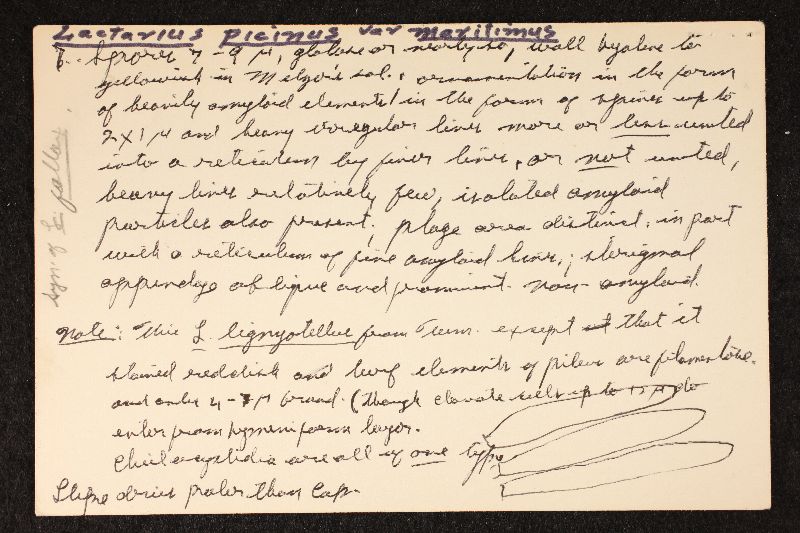 Lactarius picinus var maritimus
Spores 7-9 µ, globose or nearly so, wall hyaline to
yellowish in Melzer's sol.; ornamentation in the form
of heavily amyloid elements in the form of spines up to
2x1 µ and heavy irregular lines more or less united
into a reticulum by finer lines, or not united,
heavy lines relatively few, isolated amyloid
particles also present; plage area distinct, in part
with a reticulum of fine amyloid lines; sterigmal
appendage oblique and prominent. non-amyloid.
Note: This L. lignyotellus from Tenn. except that it
stained reddish and turf elements of pileus are filamentose
and only 4-7 µ broad. (though clavate cells up to 12 µ do
enter from hymeniform layer.
Cheilocystidia are all of one type
Stipe dries paler than cap.
syn. of L. fallax.